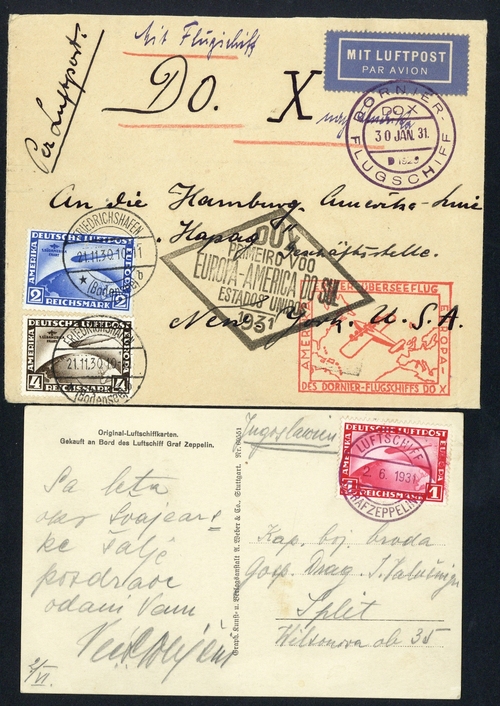 Mit Flugschiff
Per Luftpost.
DO. X
MIT LUFTPOST
PAR AVION
DORNIER-
DOX
30 JAN. 31.
FLUGSCHIFF
An die Hamburg Amerika-Linie
"Hapag" Geschäftsstelle.
New York. U.S.A.
FRIEDRICHSHAFEN
21.11.30.10-11
* b
(Bodensee)
DEUTSCHE LUFTPOST
AMERIKA
EUROPA
2 REICHSMARK 2
DO X
PRIMEIRO VOO
EUROPA-AMERICA DO SUL
ESTADOS UNIDOS
1931
ERSTER ÜBERSEEFLUG
EUROPA-
AMERIKA
DES DORNIER-FLUGSCHIFFS DO X
DEUTSCHE LUFTPOST
AMERIKA
EUROPA
4 REICHSMARK 4
FRIEDRICHSHAFEN
21.11.30.10-
(Bodensee)
Original-Luftschiffkarten.
Gekauft an Bord des Luftschiff Graf Zeppelin.
Jugoslawien
DEUTSCHE LUFTPOST
AMERIKA
1 REICHSMARK 1
LUFTSCHIFF
2.6.1931
GRAF ZEPPELIN
Sa leta
oko Švajcars=
ke šalje
pozdrave
odani Vam
2/VI.
Kunst- u. Verlagsanstalt A. Weber & Co., Stuttgart.
Kap. boj. broda
Gosp. Drag.
Split
Wilsonova ob 35